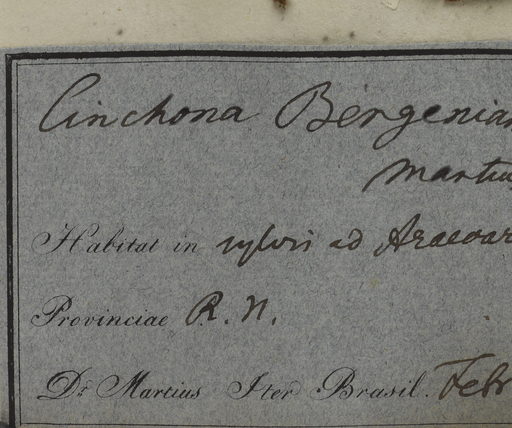 Cinchona Bergenian
Martius
Habitat in sylvis ad Aracoar
Provinciae R. N.
Dr. Martius Iter Brasil. Febr